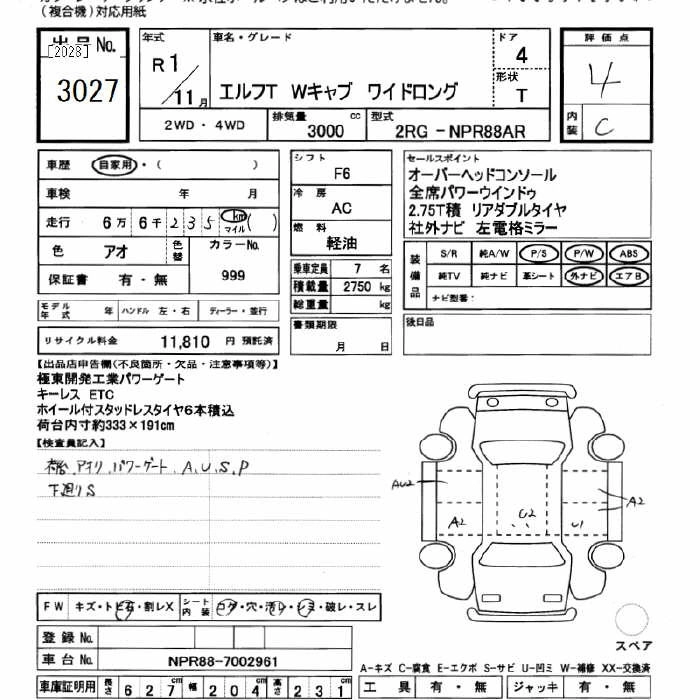 (複合機)対応用紙
出品No.
[2028]
3027
年式
R1/11月
車名・グレード
エルフT Wキャブ ワイドロング
ドア
4
形状
T
評価点
4
内装
C
2WD・4WD
排気量
3000 cc
型式
2RG-NPR88AR
車歴 自家用・( )
車検 年 月
走行 6万6千235 km マイル ( )
色 アオ 色替 カラーNo. 999
保証書 有・無
モデル年式 年 ハンドル 左・右 ディーラー・並行
リサイクル料金 11,810 円 預託済
シフト
F6
冷房
AC
燃料
軽油
乗車定員 7 名
積載量 2750 kg
総重量 kg
書類期限
月 日
セールスポイント
オーバーヘッドコンソール
全席パワーウインドゥ
2.75T積 リアダブルタイヤ
社外ナビ 左電格ミラー
装備品
S/R 純A/W P/S P/W ABS
純TV 純ナビ 革シート 外ナビ エアB
ナビ型番:
後日品
【出品店申告欄(不良箇所・欠品・注意事項等)】
極東開発工業パワーゲート
キーレス ETC
ホイール付スタッドレスタイヤ6本積込
荷台内寸約333×191cm
【検査員記入】
アオリ、パワーゲート、A、U、S、P
下廻りS
AU2
A2
U2
U1
A2
FW キズ・トビ石・割レX シート内装 コゲ・穴・汚レ・シミ・破レ・スレ
登録No.
車台No. NPR88-7002961
車庫証明用 長さ 627cm 幅 204cm 高さ 231cm
スペア
A-キズ C-腐食 E-エクボ S-サビ U-凹ミ W-補修 XX-交換済
工具 有・無 ジャッキ 有・無